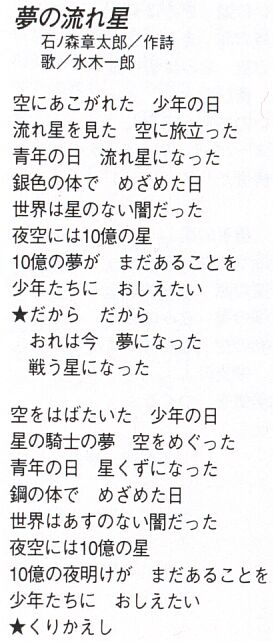 夢の流れ星
石ノ森章太郎／作詩
歌／水木一郎
空にあこがれた　少年の日
流れ星を見た　空に旅立った
青年の日　流れ星になった
銀色の体で　めざめた日
世界は星のない闇だった
夜空には10億の星
10億の夢が　まだあることを
少年たちに　おしえたい
★だから　だから
おれは今　夢になった
戦う星になった
空をはばたいた　少年の日
星の騎士の夢　空をめぐった
青年の日　星くずになった
鋼の体で　めざめた日
世界はあすのない闇だった
夜空には10億の星
10億の夜明けが　まだあることを
少年たちに　おしえたい
★くりかえし